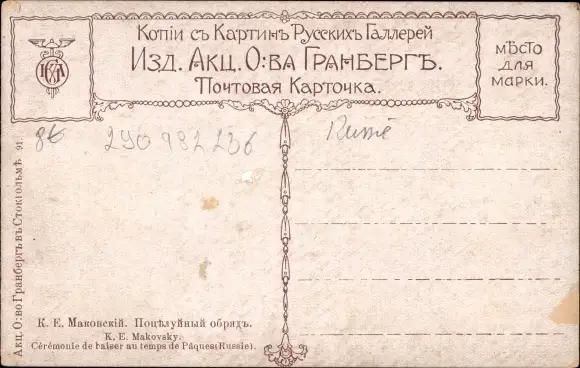 Копіи съ Картинъ Русскихъ Галлерей
Изд. Акц. О:ва Гранбергъ.
Почтовая Карточка.
МѢСТО
ДЛЯ
МАРКИ.
8€
290 982 236
Russie
Акц. О:во Гранбергъ въ Стокгольмѣ 91
К. Е. Маковскій. Поцѣлуйный обрядъ.
K. E. Makovsky.
Cérémonie de baiser au temps de Pâques(Russie).